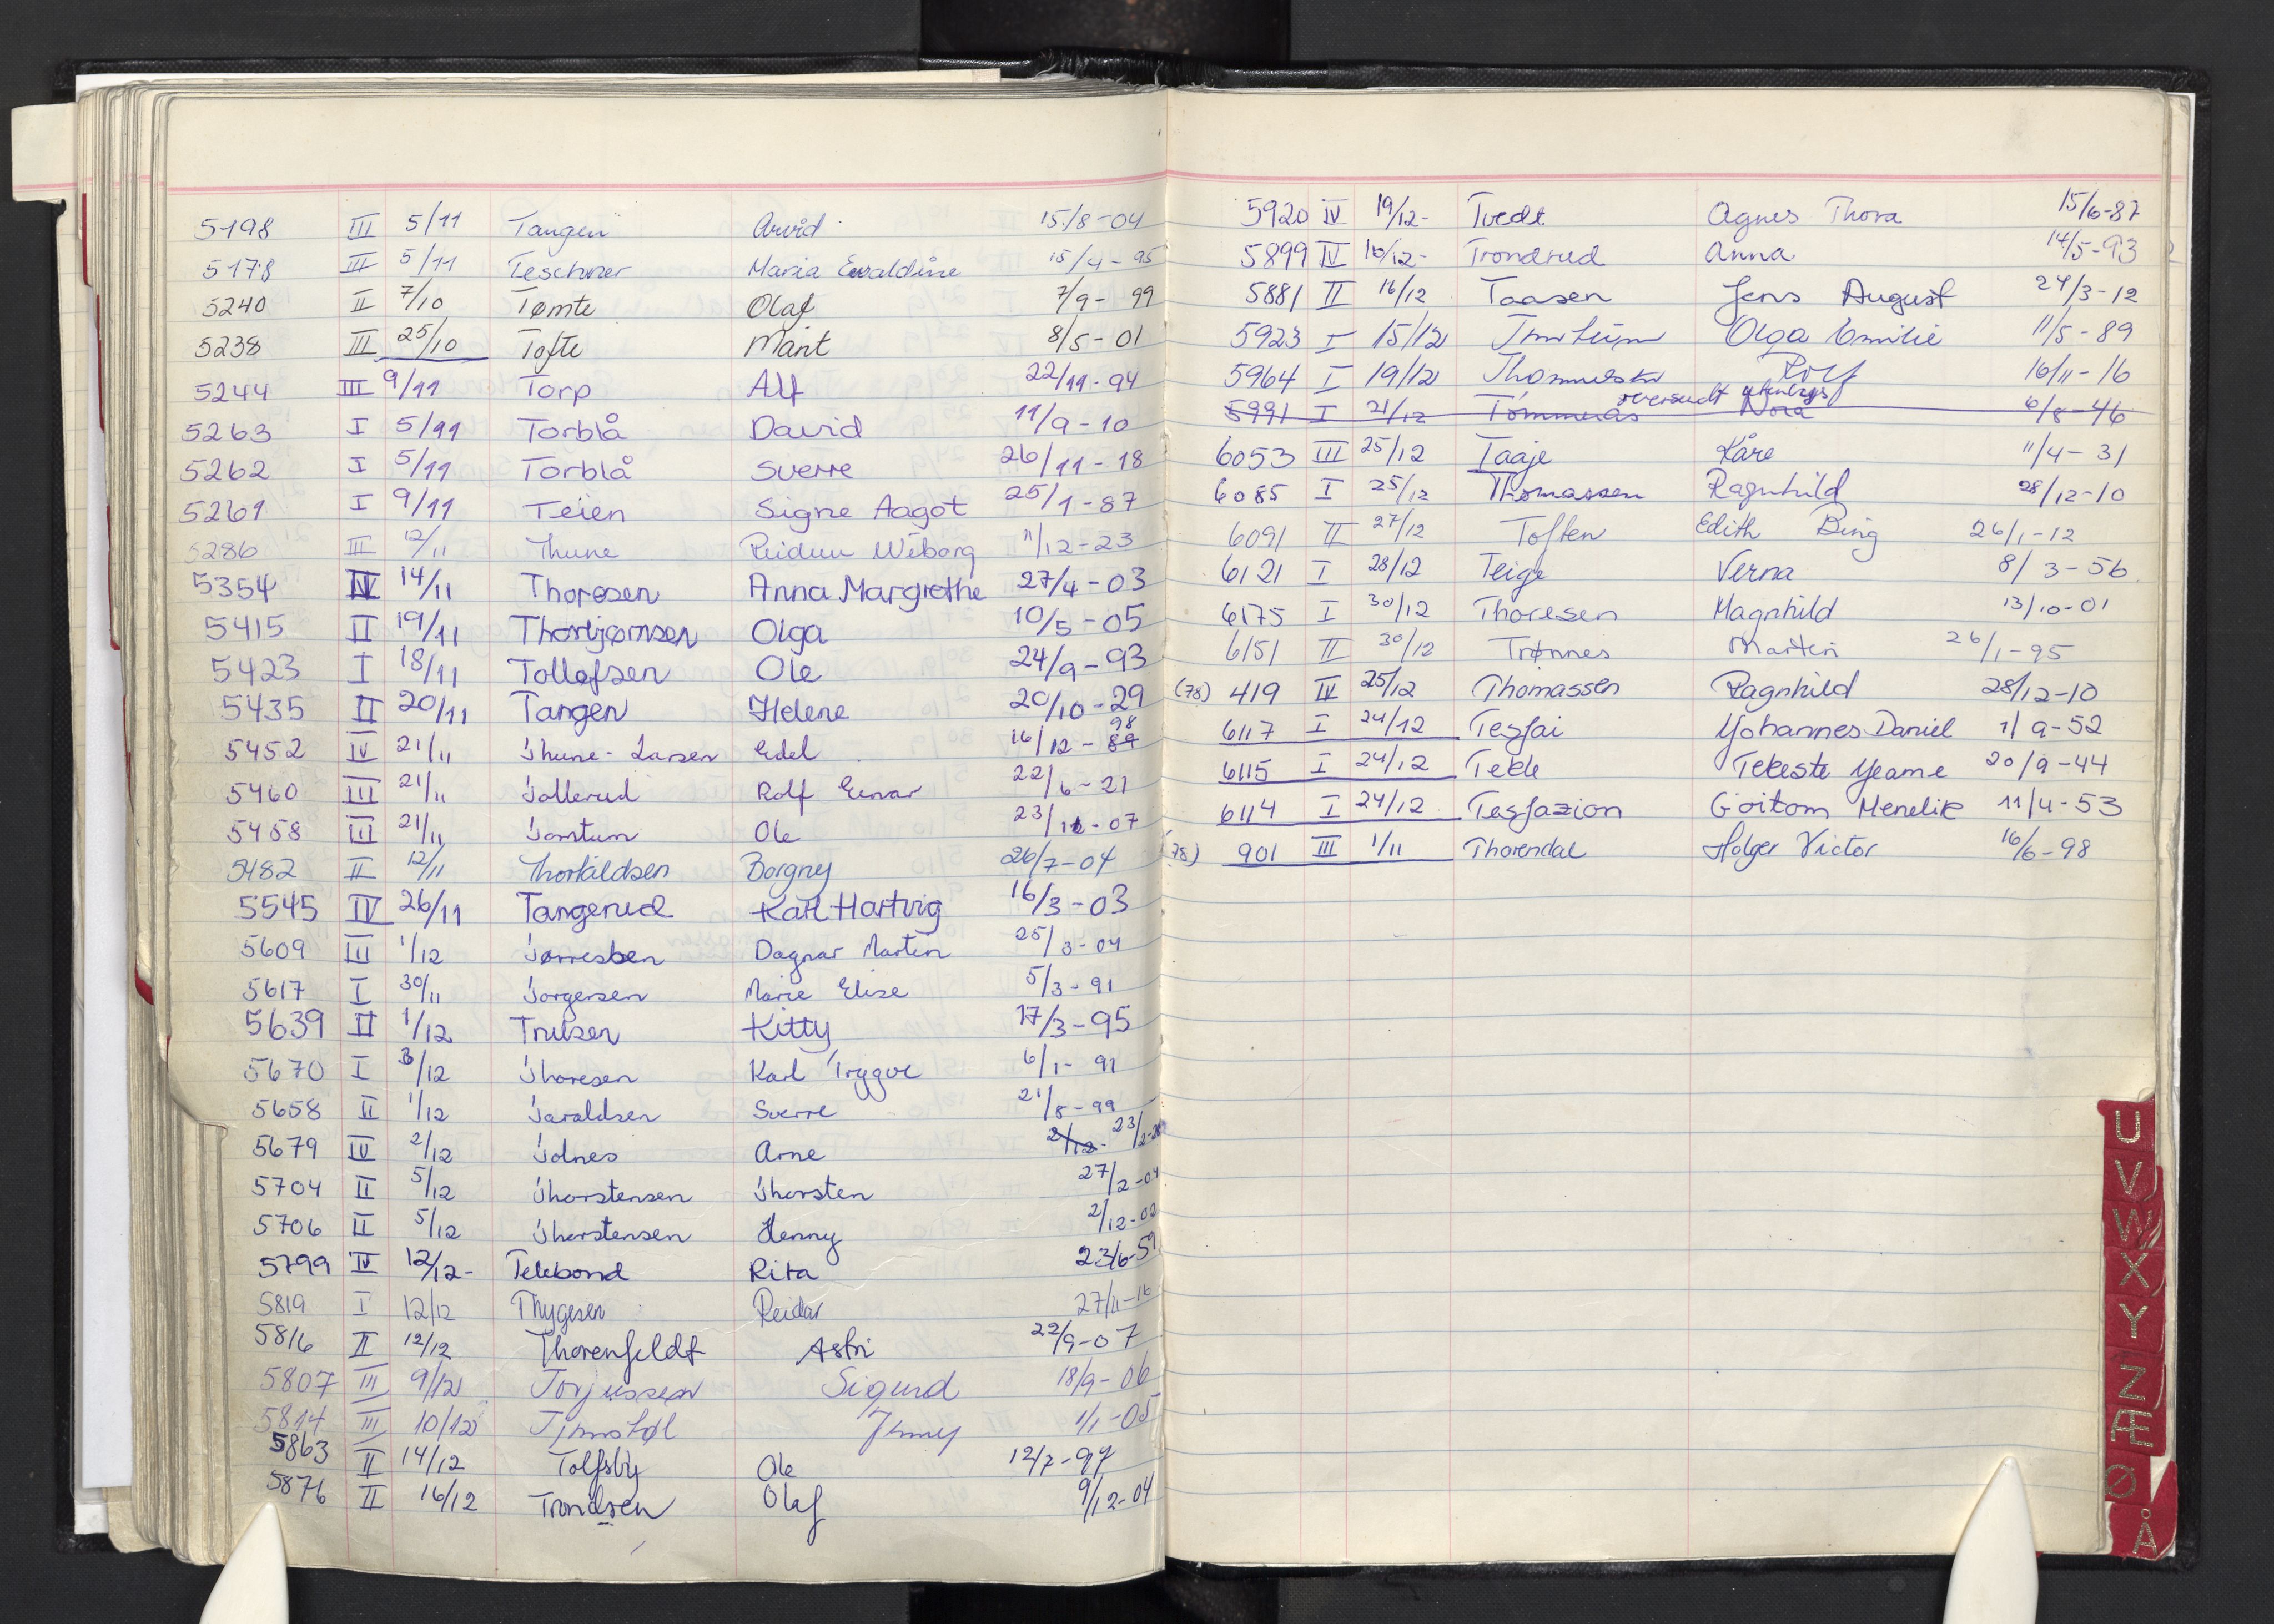 5198 III 5/11 Tangen Arvid 15/8-04
5178 III 5/11 Teschner Maria Ewaldine 15/4-95
5240 II 7/10 Tømte Olaf 7/9-99
5238 III 25/10 Tofte Marit 8/5-01
5244 III 9/11 Torp Alf 22/11-94
5263 I 5/11 Torblå David 11/9-10
5262 I 5/11 Torblå Sverre 26/11-18
5261 I 9/11 Teien Signe Aagot 25/1-87
5286 III 12/11 Thune Reidun Wiborg 11/12-23
5354 IV 14/11 Thoresen Anna Margrethe 27/4-03
5415 II 19/11 Thorbjørnsen Olga 10/5-05
5423 I 18/11 Tollefsen Ole 24/9-93
5435 II 20/11 Tangen Helene 20/10-29
5452 IV 21/11 Thune-Larsen Edel 16/12-89 98
5460 III 21/11 Tollerud Rolf Einar 22/6-21
5458 III 21/11 Tomtum Ole 23/12-07
5482 II 12/11 Thorkildsen Borgny 26/7-04
5545 IV 26/11 Tangerud Karl Hartvig 16/3-03
5609 III 1/12 Tørresen Dagnar Martin 25/3-04
5617 I 30/11 Torgersen Marie Elise 5/3-91
5639 II 1/12 Trulsen Kitty 17/3-95
5670 I 3/12 Thoresen Karl Trygve 6/1-91
5658 II 1/12 Taraldsen Sverre 21/8-99
5679 IV 2/12 Tolnes Arne 2/12- 23/2-28
5704 II 5/12 Thorstensen Thorsten 27/2-04
5706 II 5/12 Thorstensen Henny 2/12-02
5799 IV 12/12- Telebond Rita 23/6-59
5819 I 12/12 Thygesen Reidar 27/11-16
5816 II 12/12 Thorenfeldt Astri 22/9-07
5807 III 9/12 Torjussen Sigurd 18/9-06
5814 III 10/12 Jenny 1/1-05
5863 II 14/12 Tolfsby Ole 12/7-97
5876 II 16/12 Trondsen Olaf 9/12-04
5920 IV 19/12- Tvedt Agnes Thora 15/6-87
5899 IV 16/12- Trondrud Anna 14/5-93
5881 II 16/12 Taasen Jens August 24/3-12
5923 I 15/12 Olga Emilie 11/5-89
5964 I 19/12 Rolf 16/11-16
oversendt utenbys
5991 I 21/12 Tømmerås Nora 6/8-46
6053 III 25/12 Taaje Kåre 11/4-31
6085 I 25/12 Thomassen Ragnhild 28/12-10
6091 II 27/12 Toften Edith Bing 26/1-12
6121 I 28/12 Teige Verna 8/3-56
6175 I 30/12 Thoresen Magnhild 13/10-01
6151 II 30/12 Trønnes Martin 26/1-95
(78) 419 IV 25/12 Thomassen Ragnhild 28/12-10
6117 I 24/12 Tesfai Yohannes Daniel 1/9-52
6115 I 24/12 Tekle Tekeste Yeame 20/9-44
6114 I 24/12 Tesfazion Goitom Menelik 11/4-53
(78) 901 III 1/11 Thorendal Holger Victor 16/6-98
U
V
W
X
Y
Z
Æ
Ø
Å